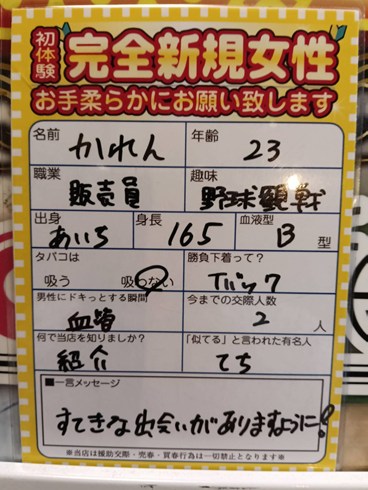 初体験
完全新規女性
お手柔らかにお願い致します
名前 かれん 年齢 23
職業 販売員 趣味 野球観戦
出身 あいち 身長 165 血液型 B 型
タバコは 吸う 吸わない 勝負下着って? Tバック
男性にドキっとする瞬間 血管 今までの交際人数 2 人
何で当店を知りましたか? 紹介 「似てる」と言われた有名人 てち
■一言メッセージ
すてきな出会いがありますように!!
※当店は援助交際・売春・買春行為は一切禁止となります※